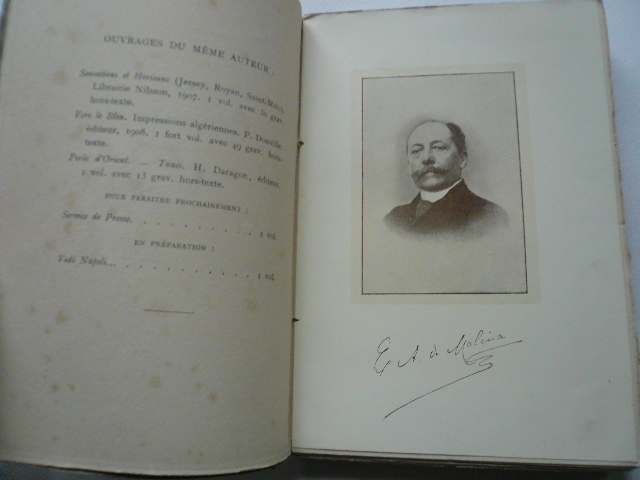 OUVRAGES DU MÊME AUTEUR :
Sensations et Horizons (Jersey, Royan, Saint-Malo).
Librairie Nilsson, 1907. 1 vol. avec 50 grav.
hors-texte.
Vers le Bleu. Impressions algériennes. P. Douville,
éditeur, 1908. 1 fort vol. avec 49 grav. hors-
texte.
Perle d'Orient. — Tunis. H. Daragon, éditeur,
1 vol. avec 13 grav. hors-texte.
POUR PARAITRE PROCHAINEMENT :
Service de Presse. . . . . . . . . . . 1 vol.
EN PRÉPARATION :
Vedi Napoli... . . . . . . . . . . . 1 vol.
E A de Molina